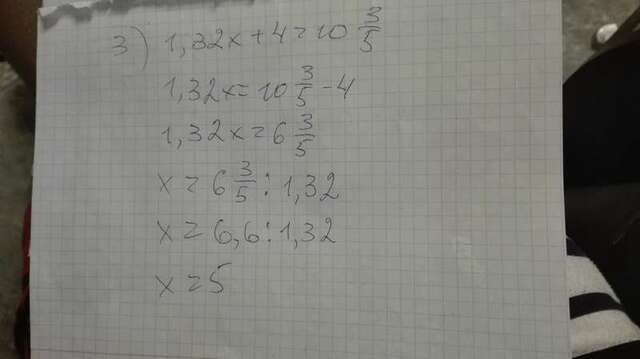 3) 1,32x+4=10 3/5
1,32x=10 3/5-4
1,32x=6 3/5
x=6 3/5:1,32
x=6,6:1,32
x=5